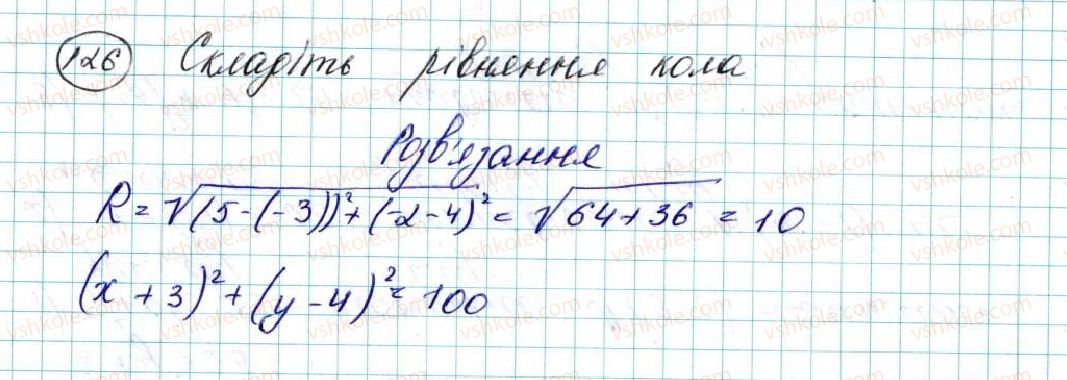 126 Складіть рівняння кола
Розв'язання
R = √(5-(-3))² + (-2-4)² = √64+36 = 10
(x + 3)² + (y - 4)² = 100